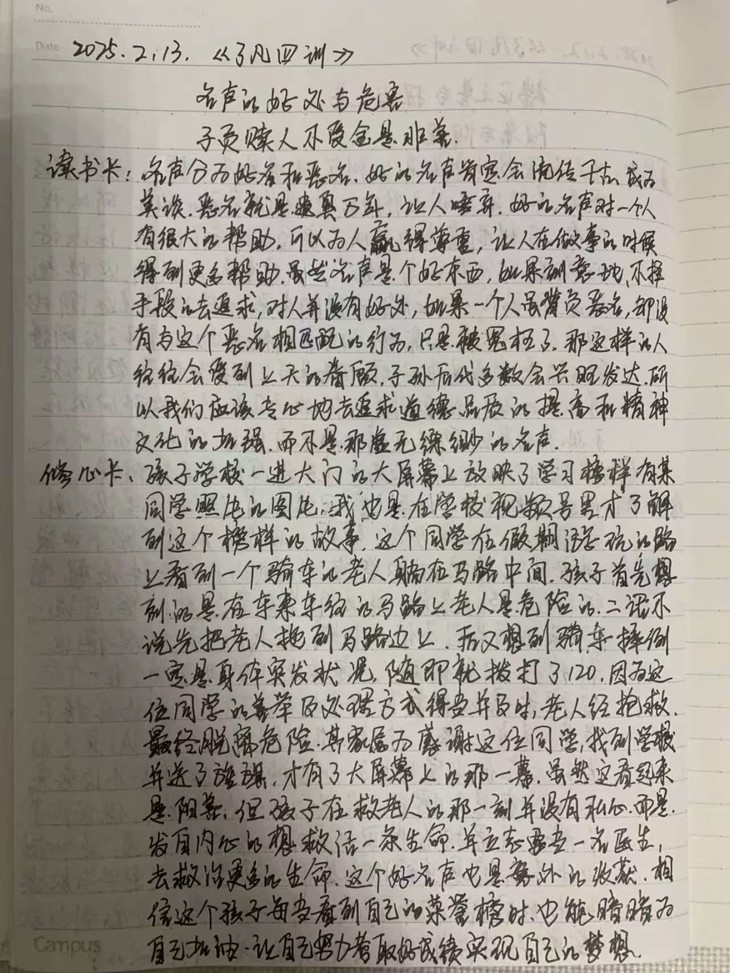 No.
Date 2025.2.13. 《了凡四训》
名声的好处与危害
子贡赎人不受金是非善.
读书卡: 名声分为好名和恶名. 好的名声肯定会流传千古. 成为
美谈. 恶名就是遗臭万年, 让人唾弃. 好的名声对一个人
有很大的帮助. 可以为人赢得尊重, 让人在做事的时候
得到更多帮助. 虽然名声是个好东西, 如果刻意地、不择
手段的去追求, 对人并没有好处, 如果一个人虽背负恶名, 却没
有与这个恶名相匹配的行为, 只是被冤枉了. 那这样的人
往往会受到上天的眷顾. 子孙后代多数会兴旺发达. 所
以我们应该专心地去追求道德品质的提高和精神
文化的加强. 而不是那虚无缥缈的名声.
修心卡: 孩子学校一进大门的大屏幕上放映了学习榜样有某
同学照片的图片. 我也是在学校视频号里才了解
到这个榜样的故事. 这个同学在假期的路
上看到一个骑车的老人躺在马路中间. 孩子首先想
到的是在车来车往的马路上老人是危险的. 二话不
说先把老人拖到马路边上. 后又想到骑车摔倒
一定是身体突发状况. 随即就拨打了120. 因为这
位同学的善举及处理方式得当并及时, 老人经抢救.
最终脱离危险. 其家属为感谢这位同学, 找到学校
并送了锦旗. 才有了大屏幕上的那一幕. 虽然这看起来
是阳善, 但孩子在救老人的那一刻并没有私心. 而是
发自内心的想救活一条生命. 并立志要当一名医生,
去救治更多的生命. 这个好名声也是意外的收获. 相
信这个孩子每当看到自己的荣誉榜时. 也能暗暗为
自己加油. 让自己努力考取好成绩实现自己的梦想.
Campus